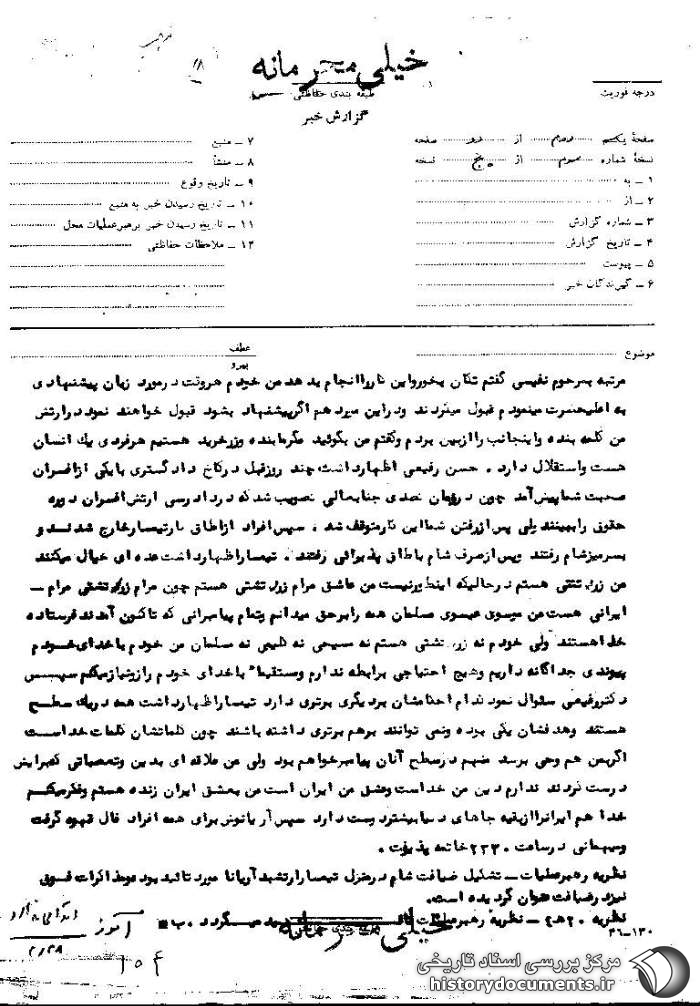 خیلی محرمانه
طبقه بندی حفاظتی
گزارش خبر
درجه فوریت
صفحهٔ یکم دوم از دو صفحه
نسخهٔ شماره سوم از پنج نسخه
۱ ـ به
۲ ـ از
۳ ـ شماره گزارش
۴ ـ تاریخ گزارش
۵ ـ پیوست
۶ ـ گیرندگان خبر
۷ ـ منبع
۸ ـ منشأ
۹ ـ تاریخ وقوع
۱۰ ـ تاریخ رسیدن خبر به منبع
۱۱ ـ تاریخ رسیدن خبر برهبر عملیات محل
۱۲ ـ ملاحظات حفاظتی
موضوع
عطف
پیرو
مرتبه بمرحوم نفیسی گفتم تکان بخورو این کاررا انجام بدهد من خودم هروقت درمورد زیان پیشنهادی
به اعلیحضرت مینمودم قبول میکردند ودراین مورد هم اگرپیشنهاد بشود قبول خواهند نمود درارتش
من کلمه بنده واینجانب را ازبین بردم وگفتم من بگوئید مگرمابنده وزرخرید هستیم هرفردی یك انسان
هست واستقلال دارد . حسن رفیعی اظهارداشت چند روزقبل درکاخ دادگستری بایکی ازافسران
صحبت شما پیش آمد چون در زمان تصدی جنابعالی تصویب شد که در دادرسی ارتش افسران دوره
حقوق را ببینند ولی پس ازرفتن شما این کارمتوقف شد . سپس افراد ازاطاق کارتیمسارخارج شدند و
بسرمیزشام رفتند وپس ازصرف شام باطاق پذیرائی رفتند . تیمساراظهارداشت عده ای خیال میکنند
من زردشتی هستم درحالیکه اینطورنیست من عاشق مرام زردتشتی هستم چون مرام زردتشتی مرام ـ
ایرانی هست من موسوی عیسوی مسلمان همه را برحق میدانم وتمام پیامبرانی که تاکنون آمدند فرستاده
خدا هستند ولی خودم نه زردتشتی هستم نه مسیحی نه کلیمی نه مسلمان من خودم باخدای خودم
پیوندی جداگانه داریم وهیچ احتیاجی برابطه ندارم ومستقیما" باخدای خودم رازونیازمیکنم سپس
دکتررفیعی سئوال نمود کدام احکامشان بردیگری برتری دارد تیمساراظهارداشت همه دریك سطح
هستند وهدفشان یکی بوده ونمی توانند برهم برتری داشته باشند چون کلماتشان کلمات خداست
اگربمن هم وحی برسد منهم درسطح آنان پیامبرخواهم بود ولی من علاقه ای بدین وتعصباتی که برایش
درست کردند ندارم دین من خداست وعشق من ایران است من بعشق ایران زنده هستم وفکرمیکنم
خدا هم ایرانرا ازبقیه جاهای دنیا بیشتردوست دارد سپس آریانوش برای همه افراد فال قهوه گرفت
ومیهمانی درساعت ۲۳۳۰ خاتمه پذیرفت .
نظریه رهبرعملیات ـ تشکیل ضیافت شام درمنزل تیمسارارتشبد آریانا مورد تائید بود ومذاکرات فوق
نیزدرضیافت عنوان گردیده است.
نظریه ۲۰ ه‍ ۲ ـ نظریه رهبرعملیات
میگردد . ب
خیلی محرمانه
۳۶-۱۳۰
۲/۲۸
۱۵۴
مرکز بررسی اسناد تاریخی
historydocuments.ir